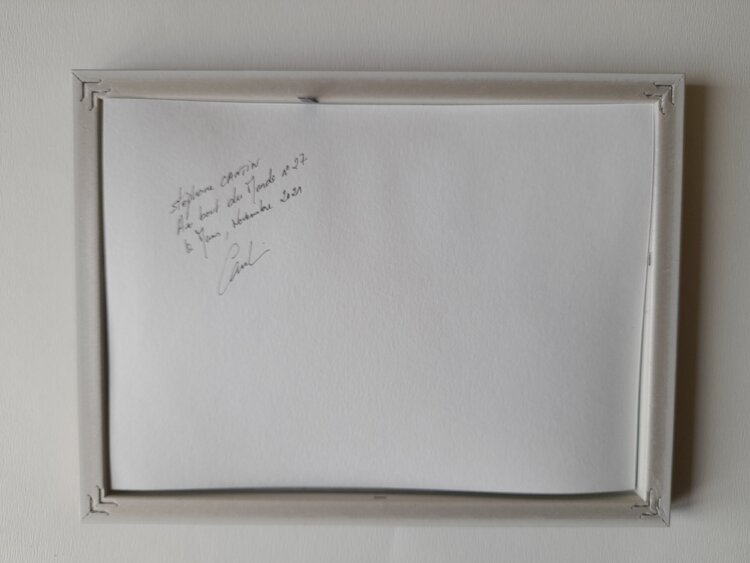 Stéphane CANTIN
Au bout du Monde n°27
Le Mans, Novembre 2021